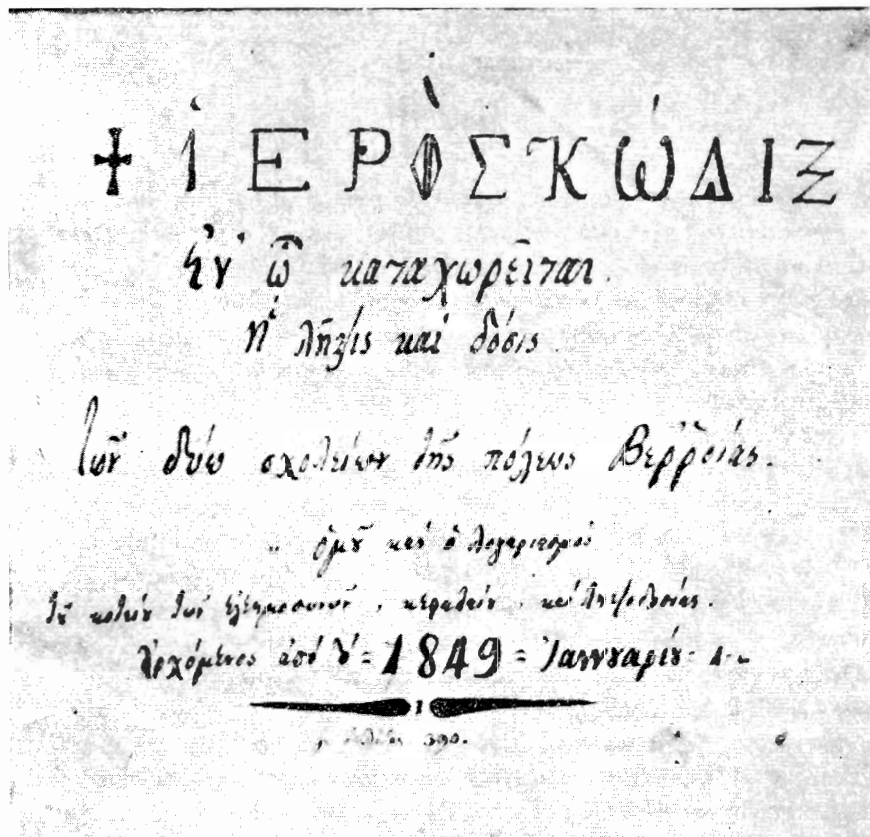 + ἹΕΡῸΣ ΚΏΔΙΞ
Ἐν ᾧ καταχωρεῖται.
Ἡ λῆψις καὶ δόσις.
Τῶν δύω σχολείων τῆς πόλεως Βεῤῥοίας.
" ὁμοῦ καὶ ὁ λογαριασμὸς
τοῦ κυτίου τῶν ἐλεημοσυνῶν, κεφαλαίου, καὶ
Ἀρχόμενος ἀπὸ = 1849 = Ἰαννουαρίου =
390.